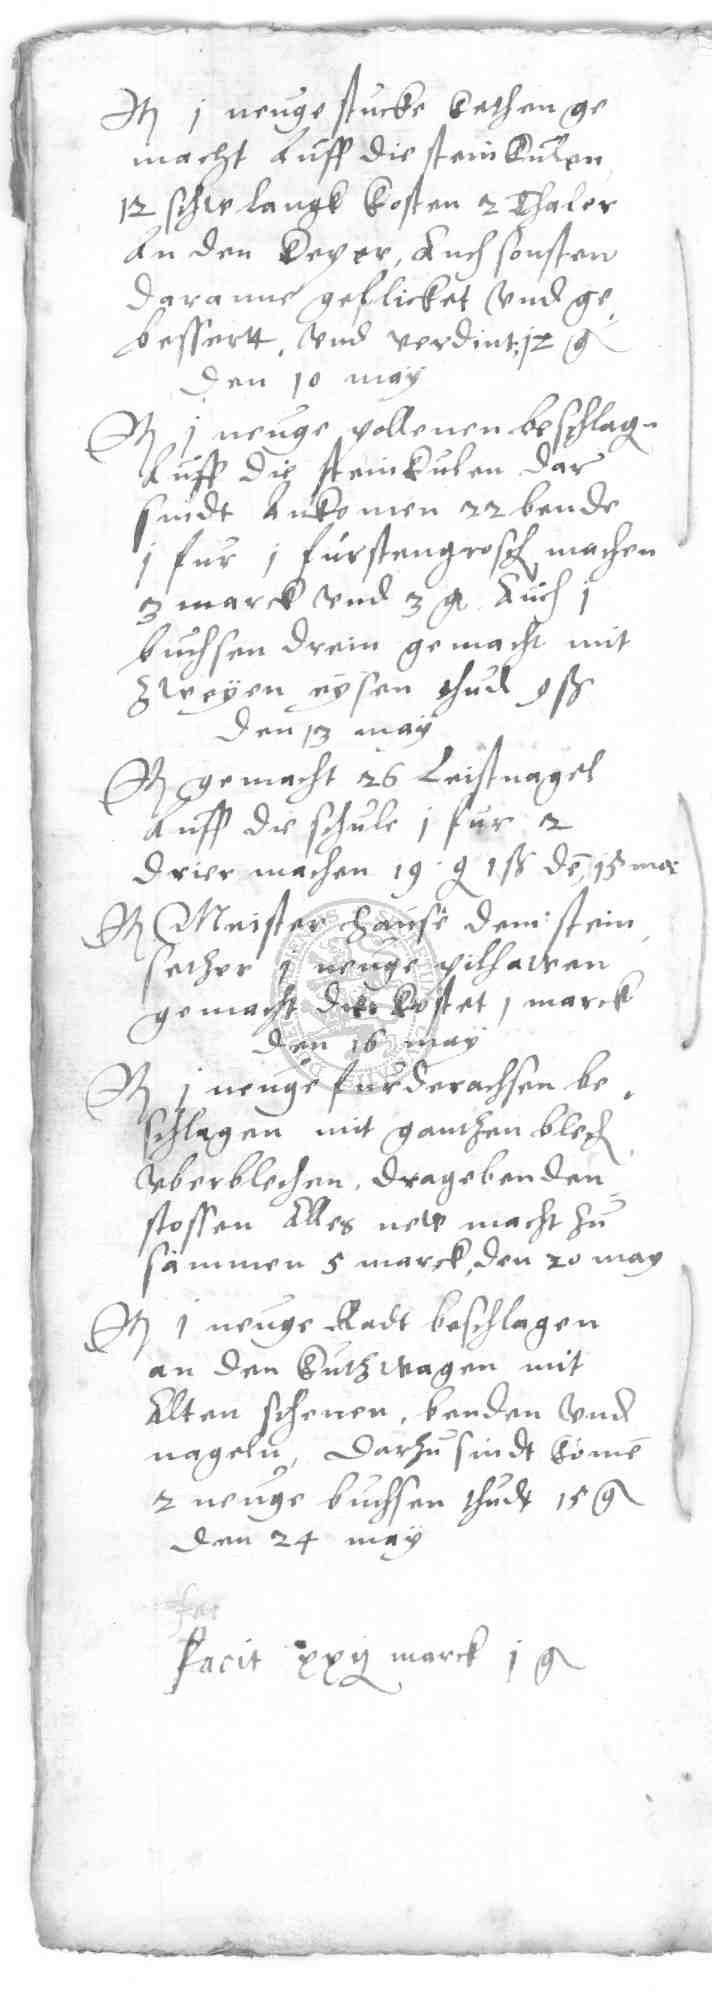 Itm j neuge stucke kethen ge
macht auff die steinkulen
12 schw langk kosten 2 Thaler
an den keper, auch sonsten
daranne geflicket vnd ge
bessertt, vnd verdint 12 g
den 10 may
Itm j neuge pollenen beschlag
auff die steinkulen dar
sindt ankomen 22 bende
j fur j furstengrosch machen
3 marck vnd 3 g auch j
buchsen drein gemacht mit
zweyen eysen thud 9 ß
den 13 may
Itm gemacht 26 Leistnagel
auff de schule j fur 2
drier machen 19 g 1 ß den 15 may
Itm Meister Hanse dem stein
sether j neuge pilhawen
gemacht die kostet 1 marck
den 16 may
Itm j neuge furderachsen be
schlagen mit gantzen blech
vberblechen, dragebenden
stossen alles new macht zu
sammen 5 marck, den 20 may
Itm j neuge Radt beschlagen
an den kutzwagen mit
alten schenen, benden vnd
nageln, darzu sindt komen
2 neuge buchsen thudt 15 g
den 24 may
fac
facit xxij marck j g